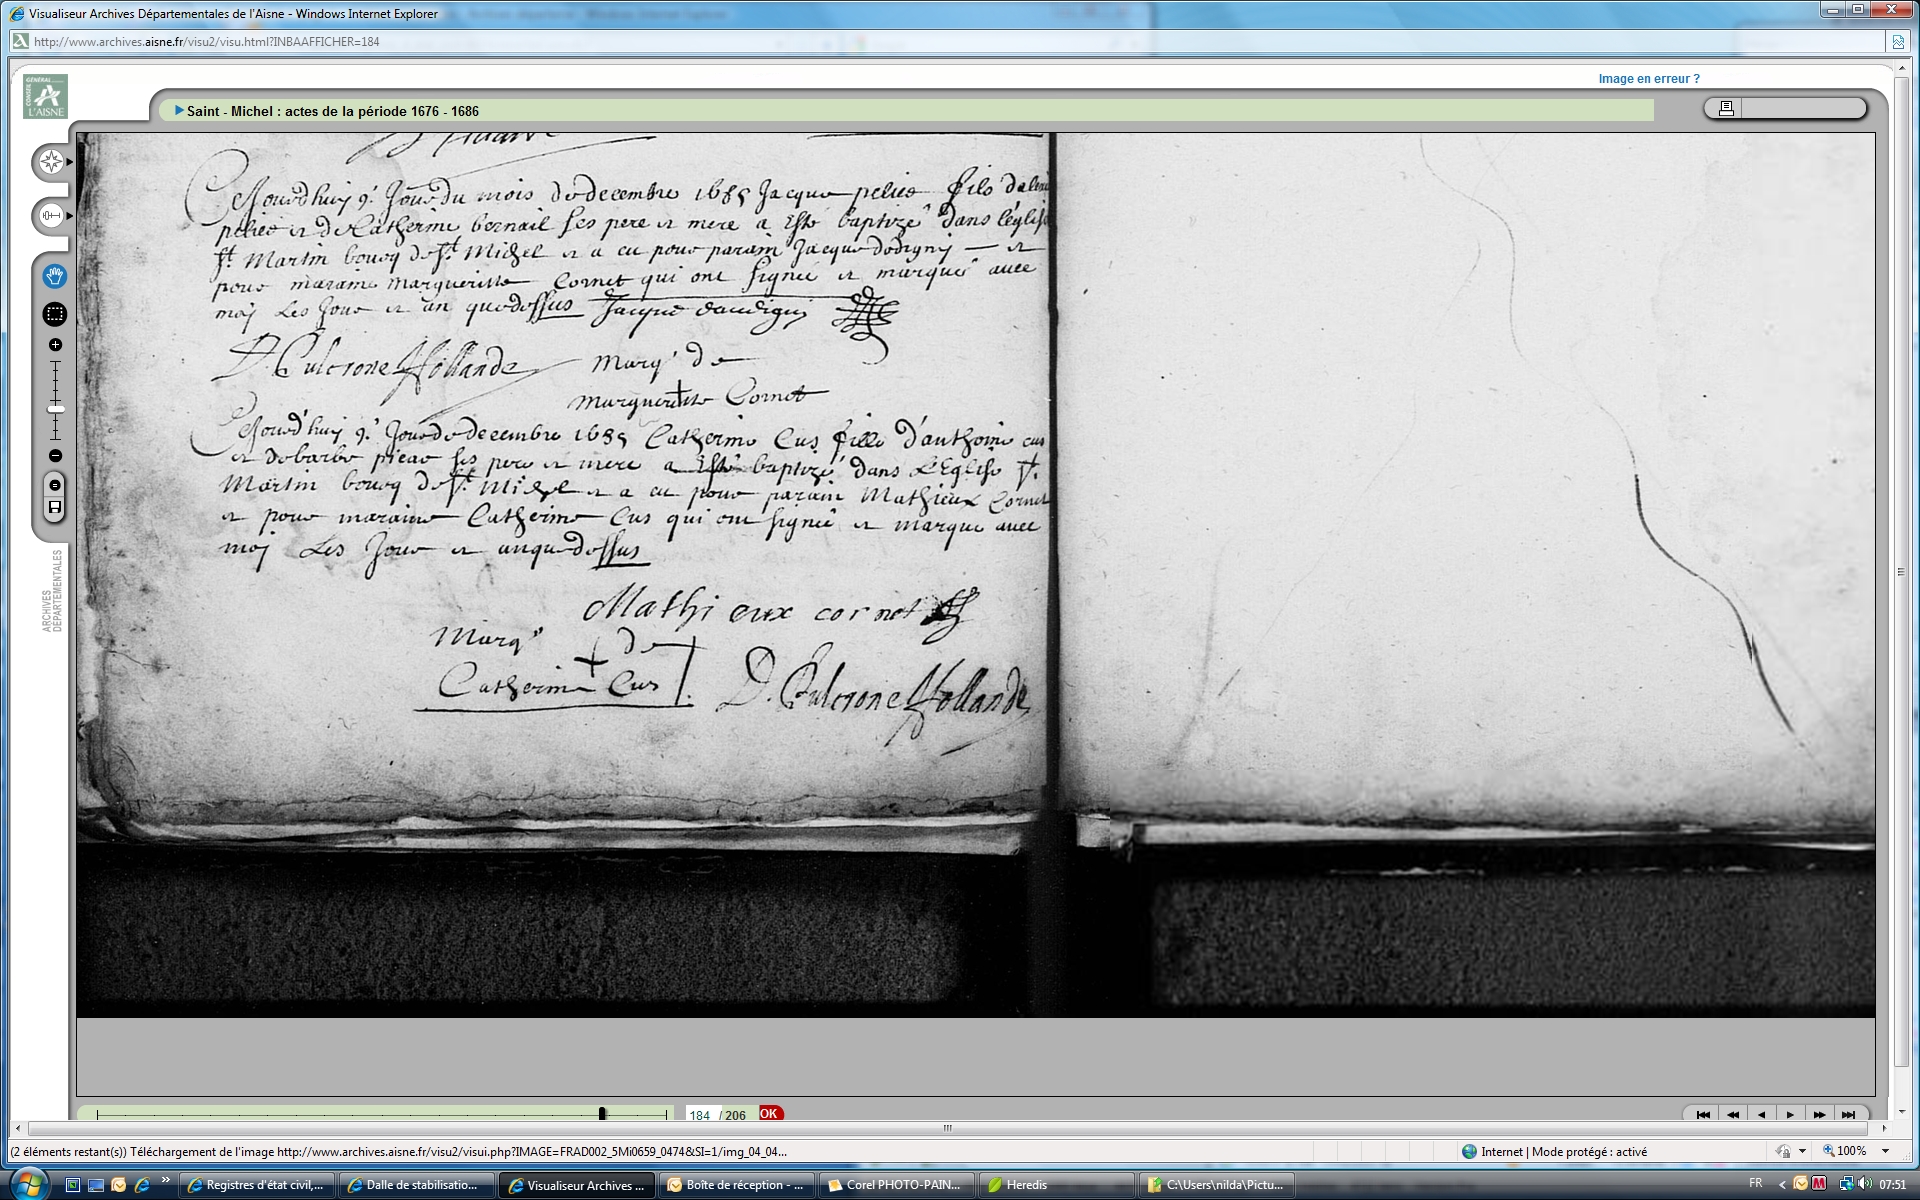 Visualiseur Archives Départementales de l'Aisne - Windows Internet Explorer
http://www.archives.aisne.fr/visu2/visu.html?INBAAFFICHER=184
Image en erreur ?
CONSEIL GÉNÉRAL
L'AISNE
Saint - Michel : actes de la période 1676 - 1686
Cejourd'huy 9e Jour du mois de decembre 1685 Jacque pelies fils
pelies et de Catherine bernail ses pere et mere a Esté baptizé dans l'église
St. Martin bourq de St. Michel et a eu pour parain Jacque dodigny et
pour maraine margueritte Cornet qui ont signé et marqué avec
moj Les Jour et an que dessus Jacque daudigny
D. Fulcrone Hollande marq' de
margueritte Cornet
Cejourd'huy 9e Jour de decembre 1685 Catherine Cus fille d'anthoine cus
et de barbe ses pere et mere a Esté baptizé dans L'Eglise St.
Martin bourq de St. Michel et a eu pour parain Mathieux Cornet
et pour maraine Catherine Cus qui ont signé et marqué avec
moj Les Jour et an que dessus
Mathieux cornet
Marq' de
Catherine Cus
D. Fulcrone Hollande
ARCHIVES
DÉPARTEMENTALES
184 / 206 OK
(2 éléments restant(s)) Téléchargement de l'image http://www.archives.aisne.fr/visu2/visui.php?IMAGE=FRAD002_5Mi0659_0474&SI=1/img_04_04...
Internet | Mode protégé : activé
100%
Registres d'état civil,...
Dalle de stabilisatio...
Visualiseur Archives ...
Boîte de réception - ...
Corel PHOTO-PAIN...
Heredis
C:\Users\nilda\Pictu...
FR
07:51